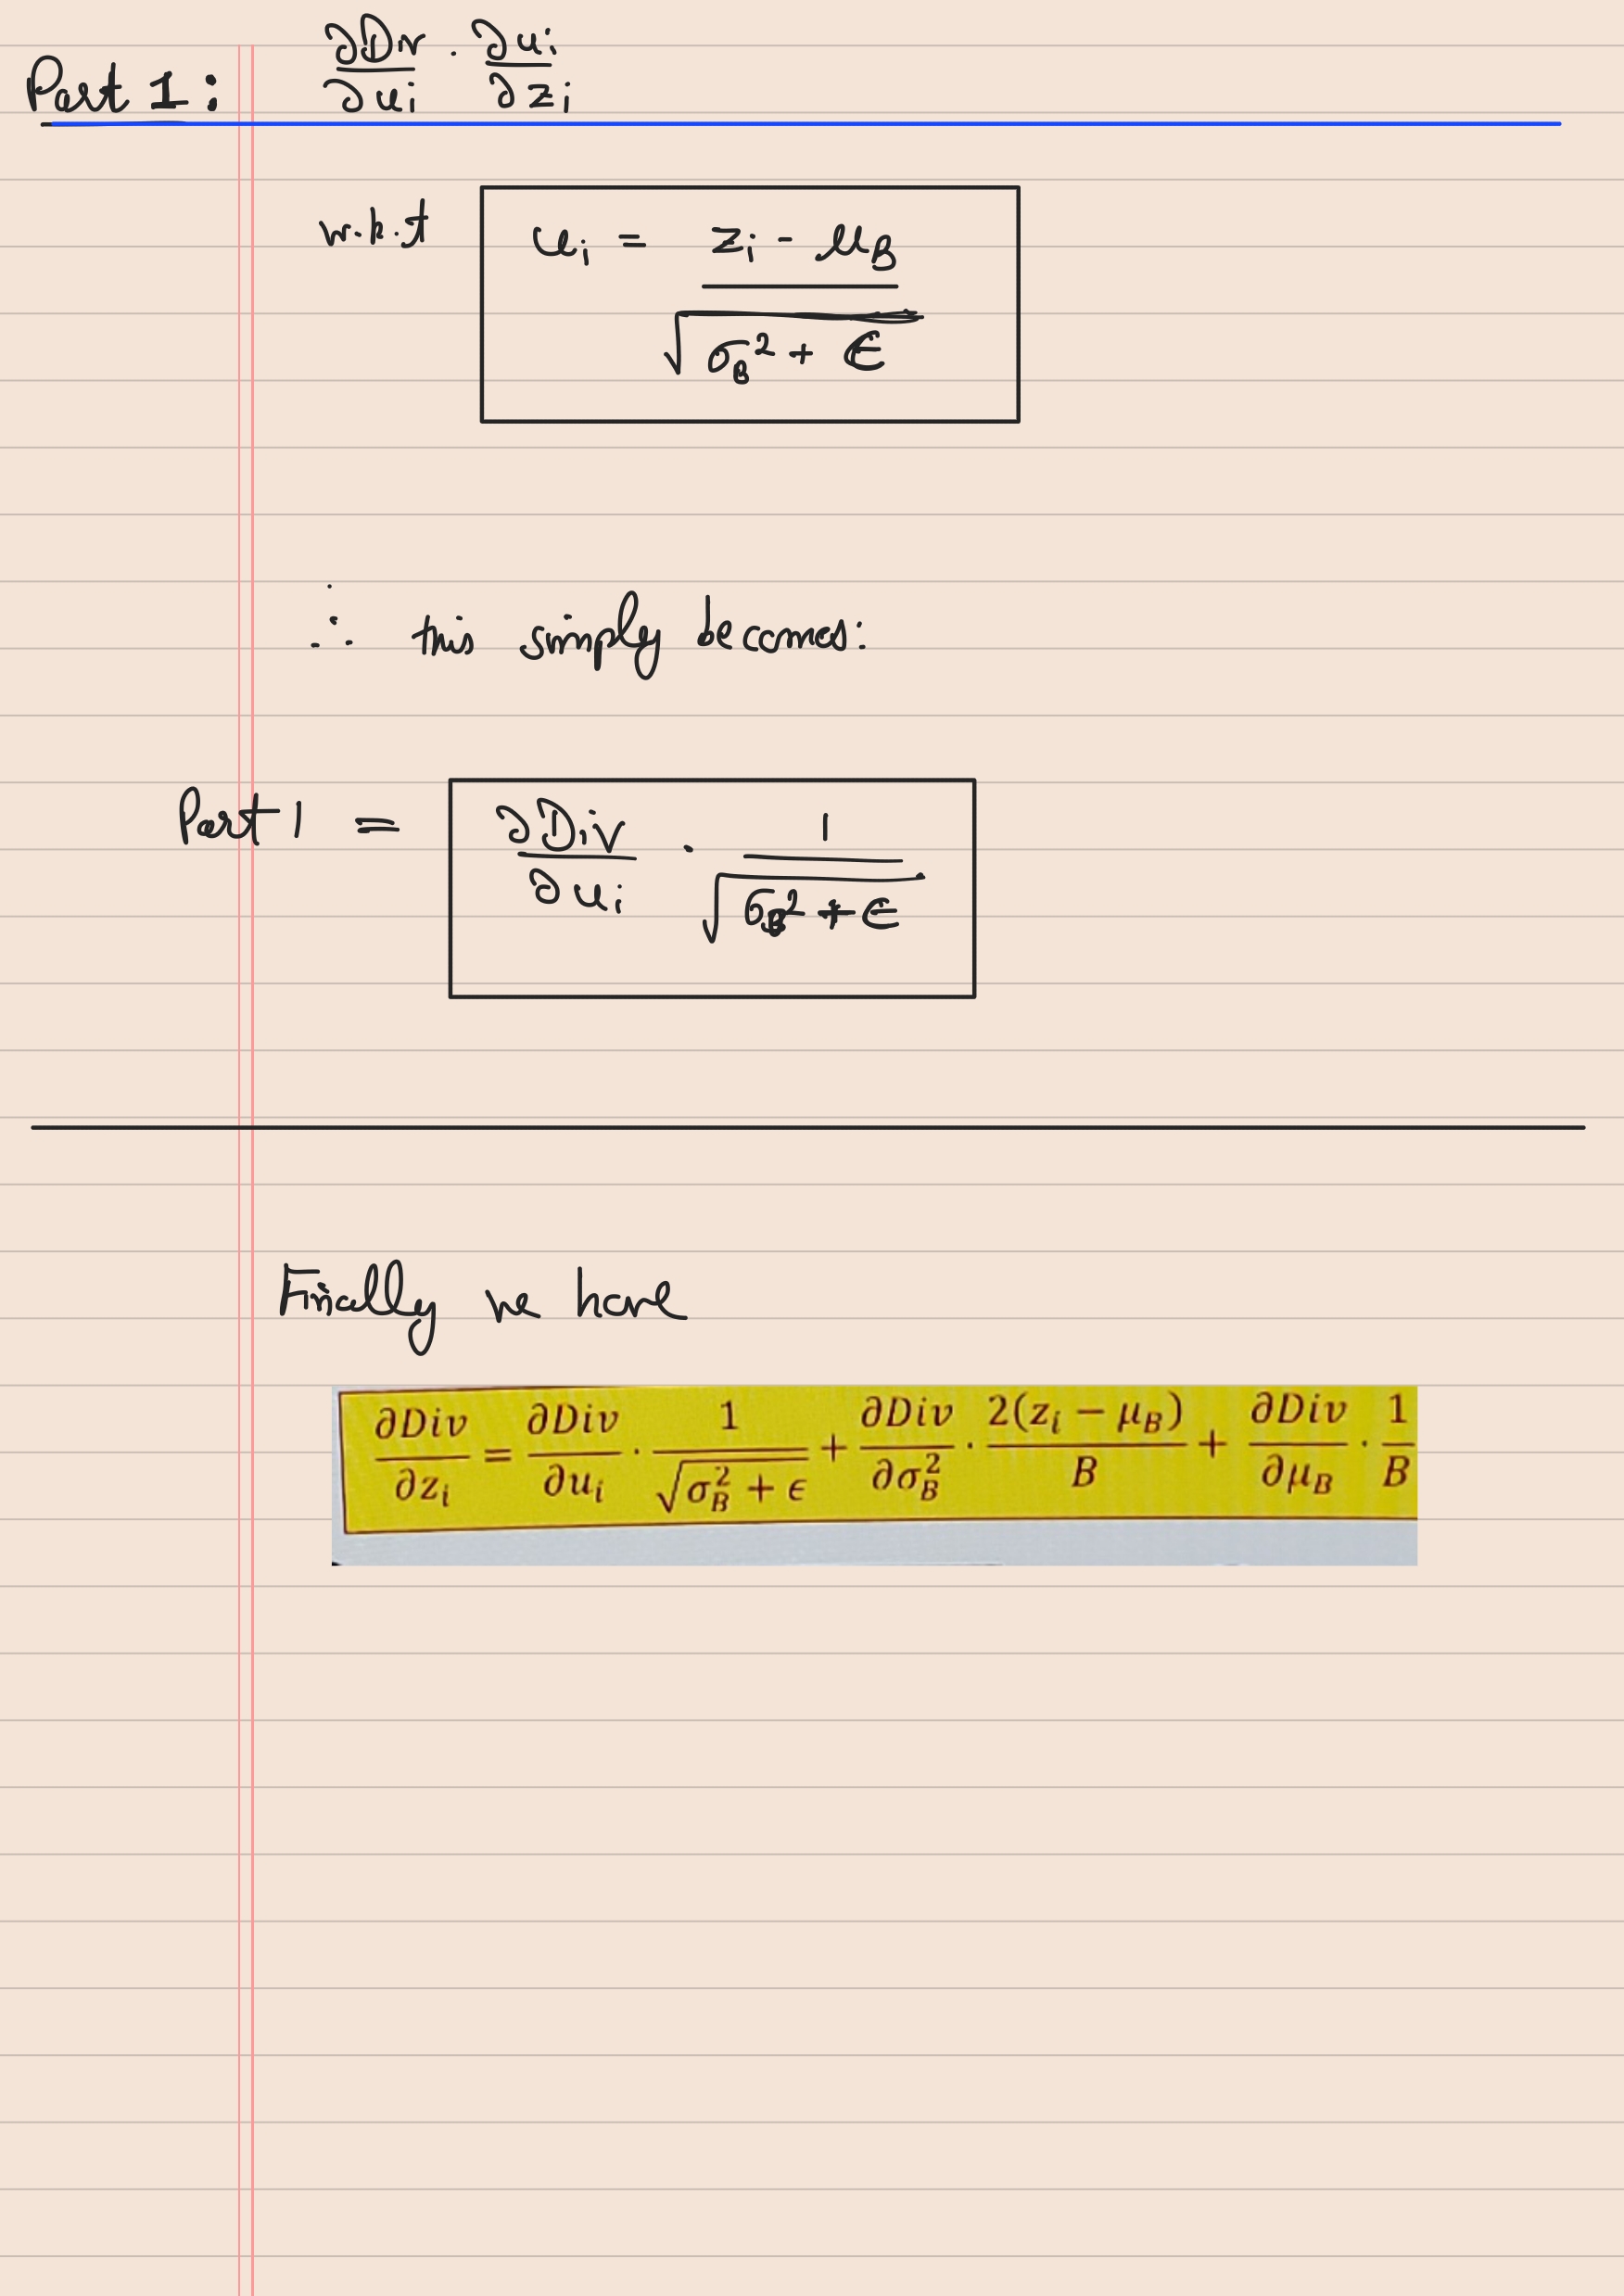 Part 1: ∂Div/∂uᵢ · ∂uᵢ/∂zᵢ
w.k.t uᵢ = (zᵢ - μ_B)/√(σ_B² + ϵ)
∴ this simply becomes:
Part 1 = ∂Div/∂uᵢ · 1/√(σ_B² + ϵ)
Finally we have
∂Div/∂zᵢ = ∂Div/∂uᵢ · 1/√(σ_B² + ϵ) + ∂Div/∂σ_B² · 2(zᵢ − μ_B)/B + ∂Div/∂μ_B · 1/B